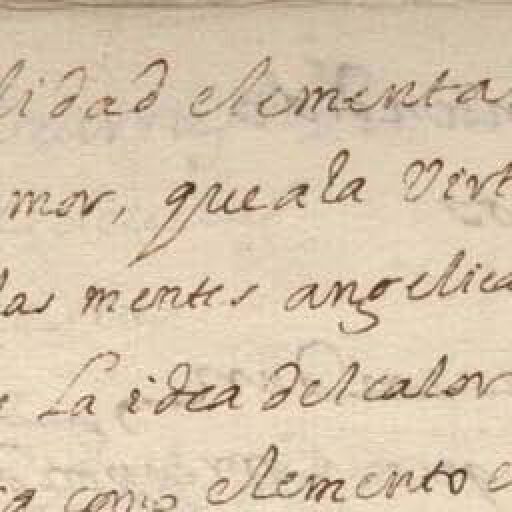 lidad elementa
mor, que ala virt
las mentes angelica
e la idea del calor
ca como elemento e